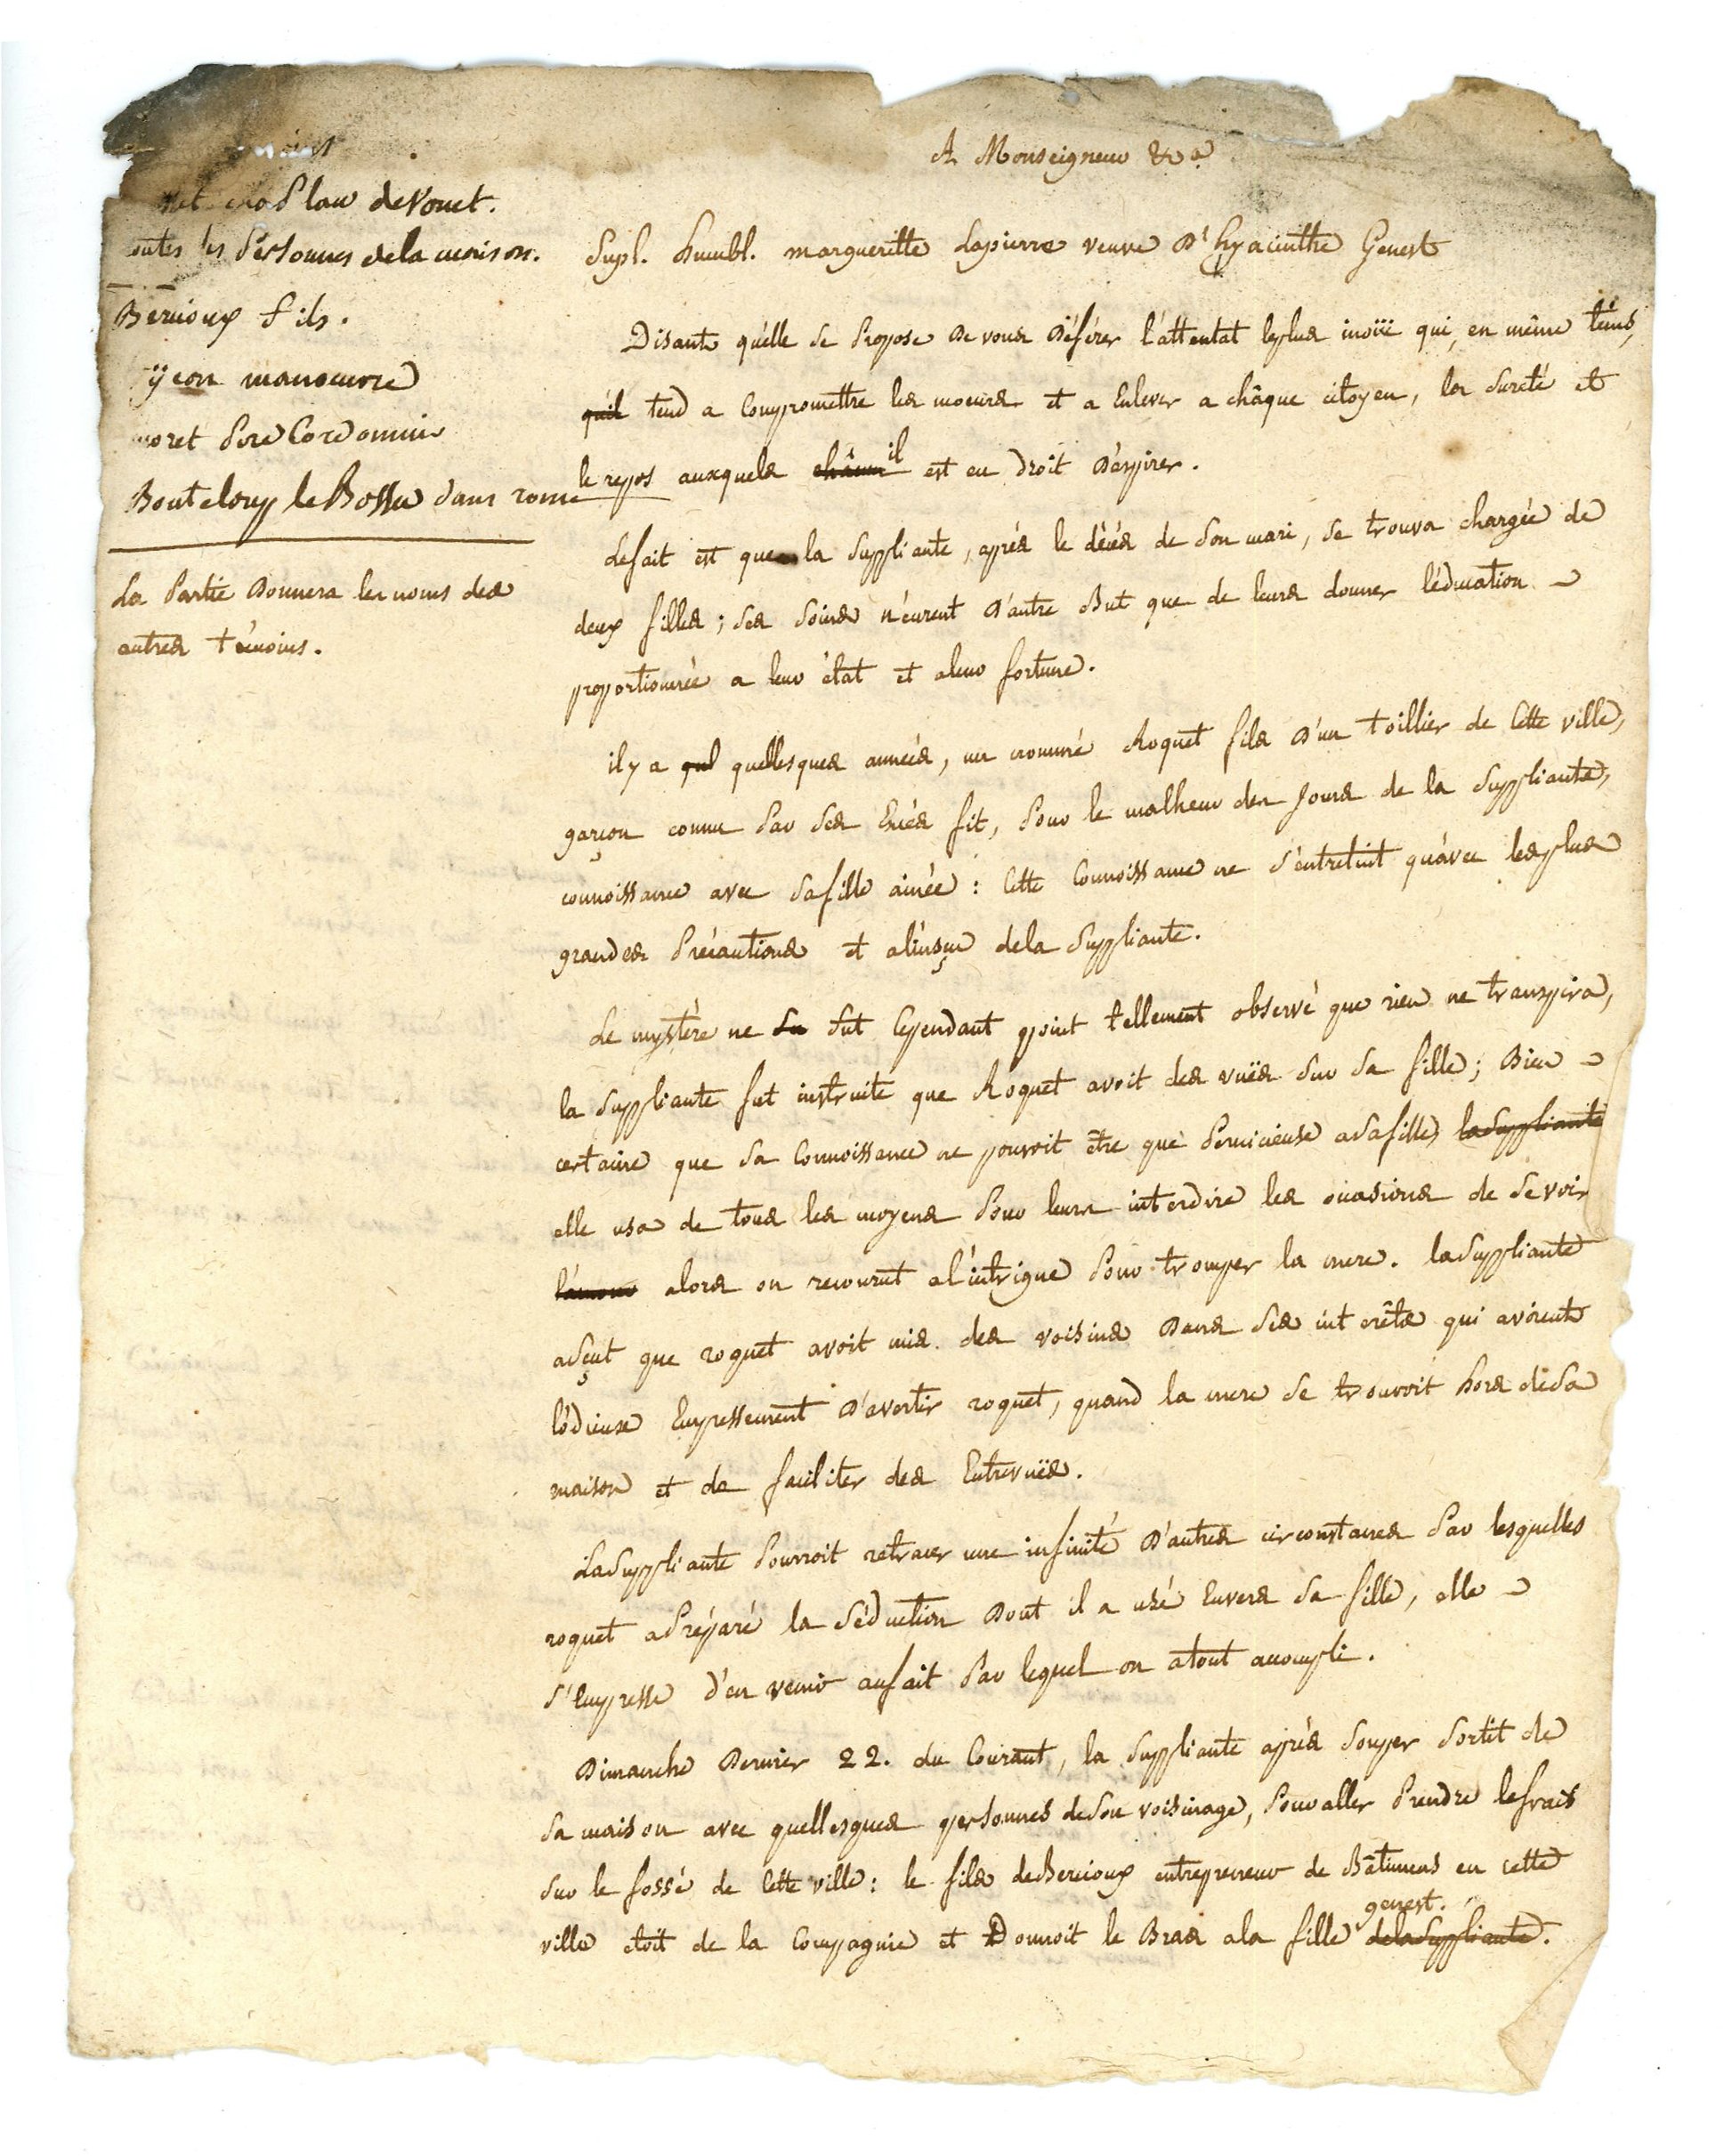 A Monseigneur &ca
de Vouet.
les personnes dela maison.
Bernioux fils.
manoeuvre
Cordonnier
Bouteloup le Bossu dans rome
La partie Donnera les noms des
autres témoins.
Supl. humbl. margueritte Lapierre veuve Dt hyacinthe Genest
Disante qu'elle se propose De vous Déférer l'attentat leplus inoüi qui, en même téms,
qu'il tend a Compromettre les moeurs et a Enlever a châque citoyen, la sureté et
le repos auxquels châcun il est en droit D'aspirer.
Lefait est que la suppliante, aprés le décés de son mari, se trouva chargée de
deux filles; ses soins n'eurent D'autre But que de leurs donner l'éducation
proportionnée a leur état et aleur fortune.
il y a quel quellesques années, un nommé Roquet fils D'un toillier de Cette ville,
garçon connu par ses Excés fit, pour le malheur des Jours de la suppliante,
connoissance avec safille ainée: Cette Connoissance ne s'entretint qu'avec lesplus
grandes précautions et al'insçu dela suppliante.
Le mystère ne su fut Cependant point tellement observé que rien ne transpira,
la suppliante fut instruite que Roquet avoit des vuës sur sa fille; Bien
certaine que sa Connoissance ne pouvoit être que pernicieuse asafille, lasuppliante
elle usa de tous les moyens pour leurs interdire les occasions de se voir
l'amour alors on recourut al'intrigue pour tromper la mere. lasuppliante
asçut que roquet avoit mis des voisins Dans ses intérêts qui avoient
l'odieux Empressement D'avertir roquet, quand la mere se trouvoit hors desa
maison et de faciliter des Entrevuës.
Lasuppliante pourroit retracer une infinité D'autres circonstances par lesquelles
roquet apréparé la séduction Dont il a usé Envers sa fille, elle
s'Empresse d'en venir aufait par lequel on atout accompli.
Dimanche Dernier 22. du Courant, la suppliante aprés souper sortit de
sa maison avec quellesques personnes deson voisinage, pour aller prendre lefrais
sur le fossé de Cette ville: le fils deBernioux entrepreneur de Bâtimens en cette
ville etoit de la Compagnie et Donnoit le Bras ala fille delasuppliante. genest.